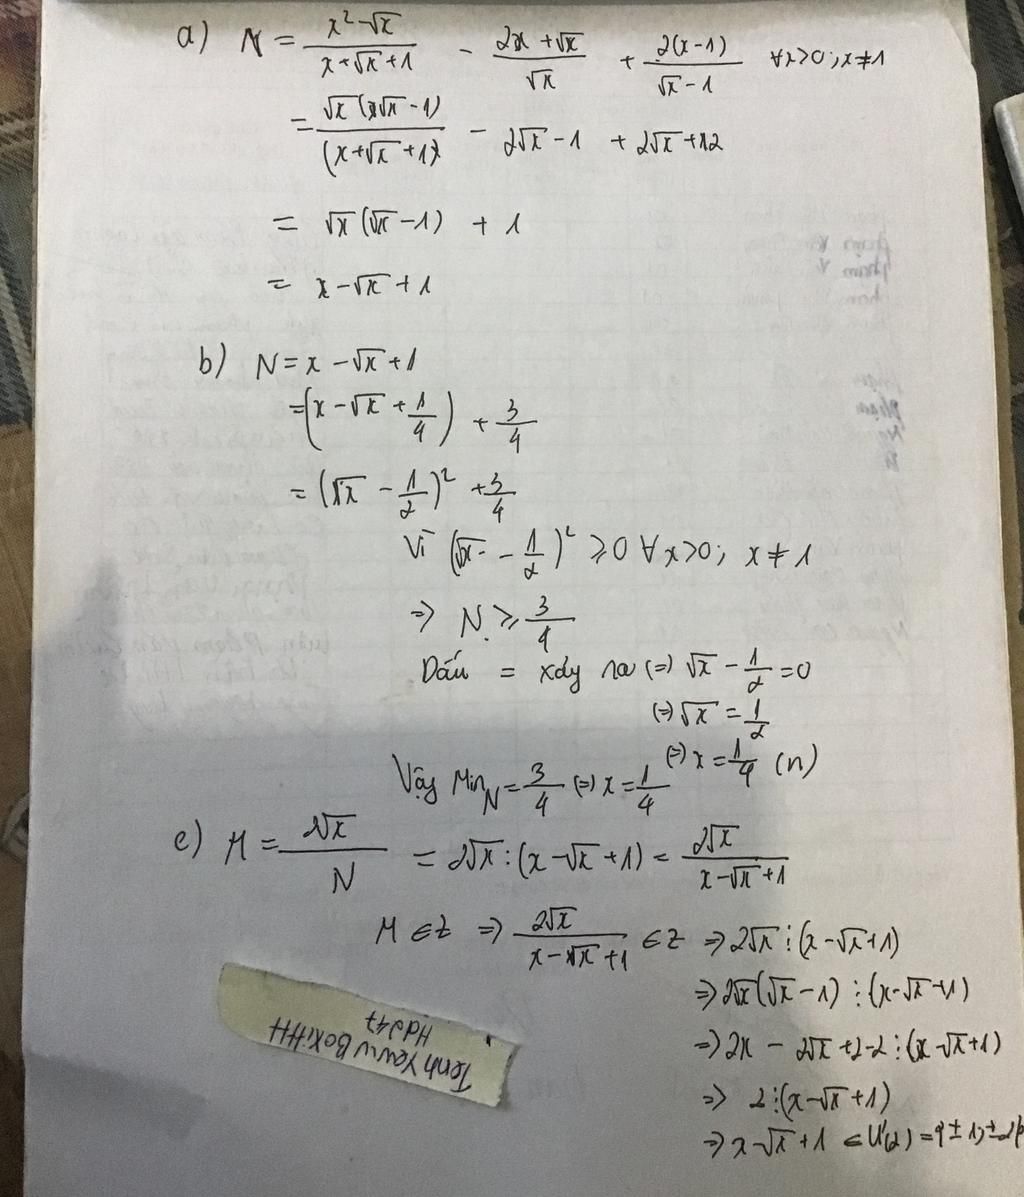 a) N = (x² - √x)/(x + √x + 1) - (2x + √x)/√x + 2(x-1)/(√x - 1) ∀x>0; x≠1
= √x (x√x - 1)/(x + √x + 1) - 2√x - 1 + 2√x + 2
= √x (√x - 1) + 1
= x - √x + 1
b) N = x - √x + 1
= (x - √x + 1/4) + 3/4
= (√x - 1/2)² + 3/4
Vì (√x - 1/2)² ≥ 0 ∀x>0; x ≠ 1
=> N ≥ 3/4
Dấu = xảy ra (=) √x - 1/2 = 0
(=) √x = 1/2
(=) x = 1/4 (n)
Vậy Min N = 3/4 (=) x = 1/4
c) M = 2√x/N = 2√x : (x - √x + 1) = 2√x/(x - √x + 1)
M ∈ Z => 2√x/(x - √x + 1) ∈ Z => 2√x ⋮ (x - √x + 1)
=> 2√x(√x - 1) ⋮ (x - √x + 1)
=> 2x - 2√x + 2 - 2 ⋮ (x - √x + 1)
=> 2 ⋮ (x - √x + 1)
=> x - √x + 1 ∈ Ư(2) = {±1; ±2}
Hdg247